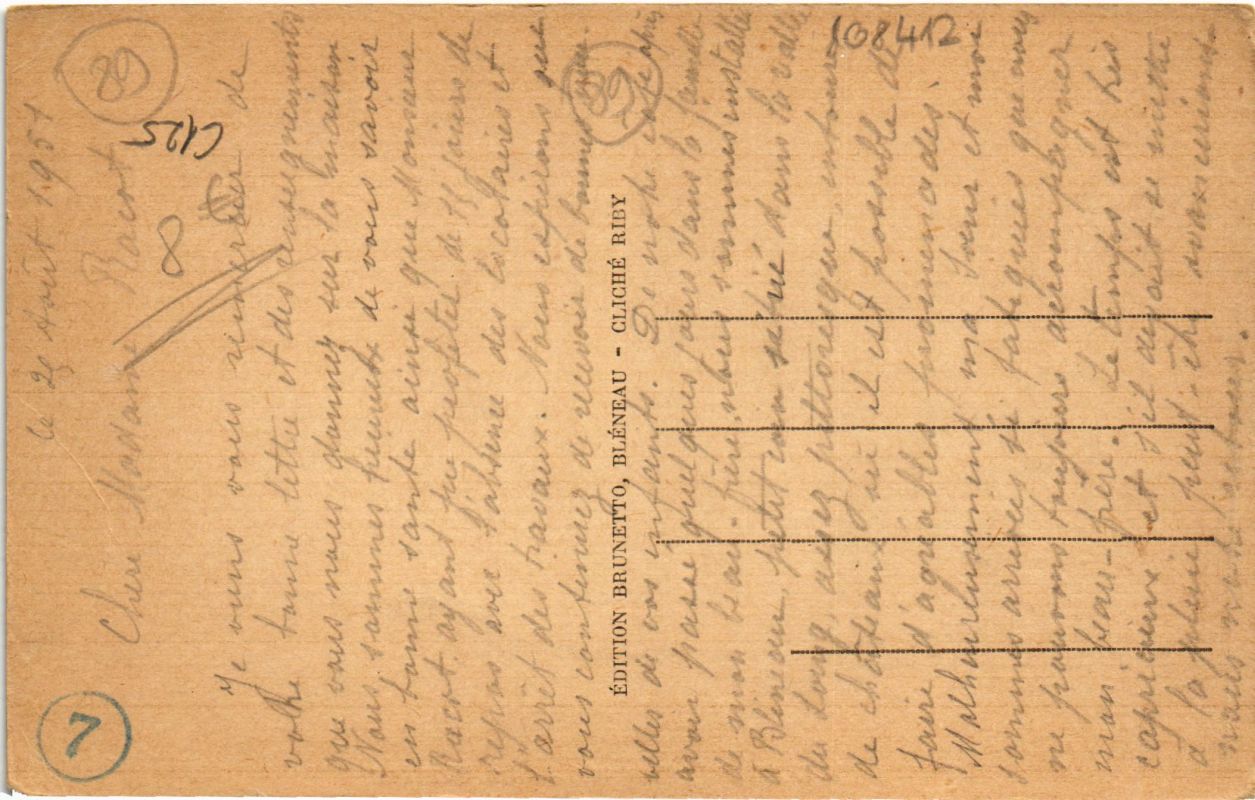 le 23 Août 1951
Chère Madame Racort
Je viens vous remercier de
votre bonne lettre et des renseignements
que vous nous donnez sur la maison
Nous sommes heureux de vous savoir
en bonne santé ainsi que Monsieur
Racort ayant pu profiter de 15 jours de
repos avec l'absence des locataires et
l'arrêt des travaux. Nous espérons que
vous continuez de recevoir de bonnes
nouvelles de vos enfants. De notre côté après
avoir passé quelques jours dans la famille
de mon beau-frère, nous sommes installés
à Bléneau, petit coin situé dans la vallée
du Loing, assez pittoresque, entouré
de châteaux où il est possible de
faire d'agréables promenades.
Malheureusement ma soeur et moi
sommes arrivées si fatiguées que nous
ne pouvons toujours accompagner
mon beau-frère. Le temps est très
capricieux et s'il devait se mettre
à la pluie peut-être
nous
ÉDITION BRUNETTO, BLÉNEAU - CLICHÉ RIBY
108412
C125
89
89
8
7